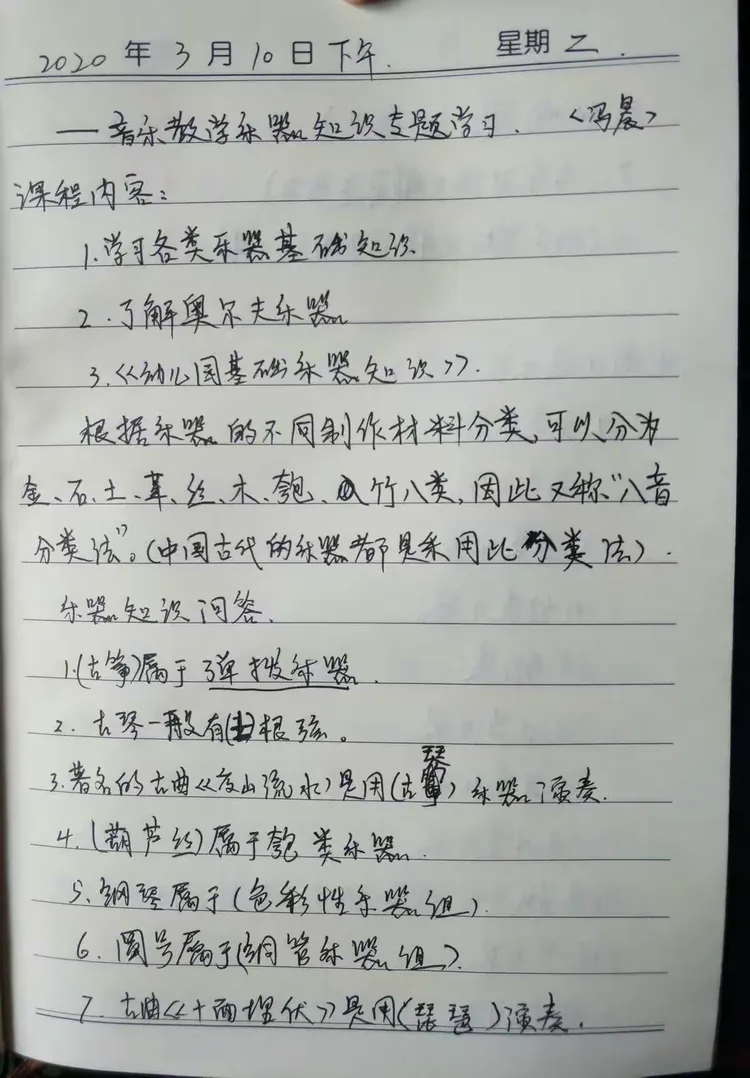 2020 年 3 月 10 日 下午. 星期 二.
— 音乐教学乐器知识专题学习. <冯晨>
课程内容：
1.学习各类乐器基础知识.
2.了解奥尔夫乐器
3.《幼儿园基础乐器知识》.
根据乐器的不同制作材料分类,可以分为
金、石、土、革、丝、木、匏、竹八类,因此又称“八音
分类法”。(中国古代的乐器都是采用此分类法).
乐器知识问答.
1.(古筝)属于弹拨乐器.
2.古琴一般有(七)根弦。
3.著名的古曲《高山流水》是用(古琴)乐器演奏.
4.(葫芦丝)属于匏类乐器.
5.钢琴属于(色彩性乐器组).
6.圆号属于(铜管乐器组).
7.古曲《十面埋伏》是用(琵琶)演奏.